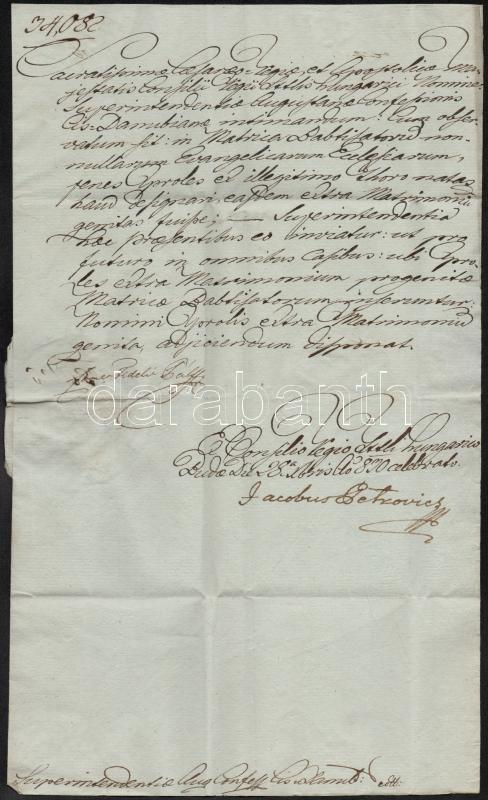 34,082
Sacratissimae Caesareo-Regiae, et Apostolicae Ma-
jestatis Consilii Regii Lttlis Hungarici Nomine
Superintendentiae Augustanae Confessionis
Cis-Danubianae intimandum: Cum obser-
vatum sit: in Matrica Babtisatorum non-
nullarum Evangelicarum Ecclesiarum,
penes Proles ex illegitimo thoro natas
haud designari, easdem extra Matrimonium
genitas fuisse; — Superintendentiae
huic praesentibus eo inviatur: ut pro
futuro in omnibus casibus: ubi Pro-
les extra Matrimonium progenitae
Matricae Babtisatorum inseruntur:
Nomini Prolis extra Matrimonium
genitae, adjiciendum disponat.
Fidelis Pálffy
E Consilio Regio Lttli Hungarico
Budae Die 28a 7bris Ao 830 celebrato.
Jacobus Petrovics
Superintendentiae Aug. Confess. Cis-Danub: edtt:
darabanth